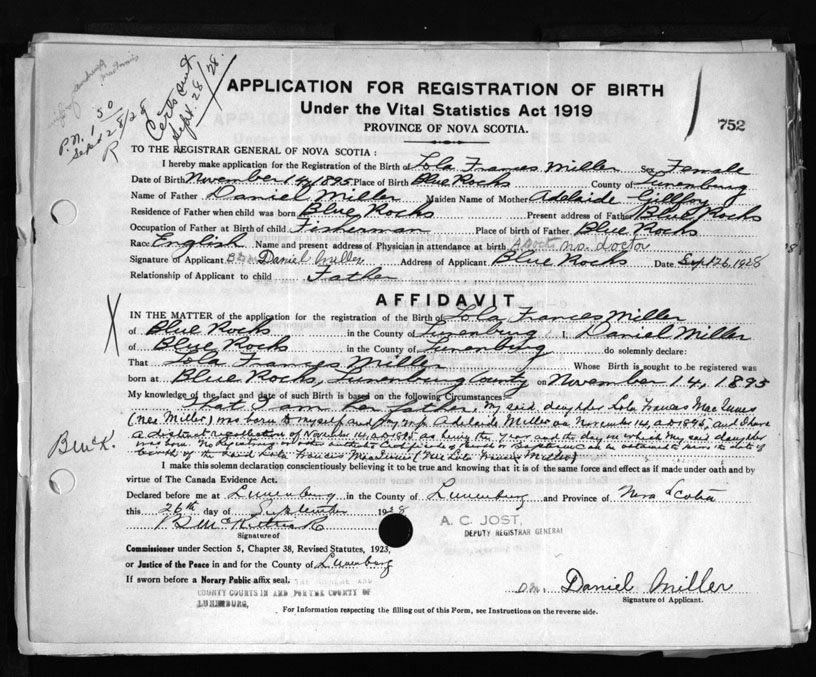 P.N. 1 50
Sept 28/28
R
Certs sent
Sept. 28/28.
APPLICATION FOR REGISTRATION OF BIRTH
Under the Vital Statistics Act 1919
PROVINCE OF NOVA SCOTIA.
752
TO THE REGISTRAR GENERAL OF NOVA SCOTIA :
I hereby make application for the Registration of the Birth of Lola Frances Miller Sex Female
Date of Birth November 14, 1895 Place of Birth Blue Rocks County of Lunenburg
Name of Father Daniel Miller Maiden Name of Mother Adelaide
Residence of Father when child was born Blue Rocks Present address of Father Blue Rocks
Occupation of Father at Birth of child Fisherman Place of birth of Father Blue Rocks
Race English Name and present address of Physician in attendance at birth no doctor
Signature of Applicant Daniel Miller Address of Applicant Blue Rocks Date Sept 26, 1928
Relationship of Applicant to child Father
AFFIDAVIT
IN THE MATTER of the application for the registration of the Birth of Lola Frances Miller
of Blue Rocks in the County of Lunenburg I, Daniel Miller
of Blue Rocks in the County of Lunenburg do solemnly declare:
That Lola Frances Miller Whose Birth is sought to be registered was
born at Blue Rocks, Lunenburg County on November 14, 1895
My knowledge of the fact and date of such Birth is based on the following Circumstances
That I am her father. My said daughter Lola Frances MacInnes
(nee Miller) was born to myself and my wife Adelaide Miller on November 14, A.D. 1895, and I have
a distinct recollection of November 14, A.D. 1895 as being the year and the day on which my said daughter
was born. No Registration or other authentic Certificate of Birth or Baptism can be obtained to prove the date of
birth of the said Lola Frances MacInnes (nee Lola Frances Miller)
B McK.
I make this solemn declaration conscientiously believing it to be true and knowing that it is of the same force and effect as if made under oath and by
virtue of The Canada Evidence Act.
Declared before me at Lunenburg in the County of Lunenburg and Province of Nova Scotia
this 26th day of September 1928
Signature of
A. C. JOST,
DEPUTY REGISTRAR GENERAL
Commissioner under Section 5, Chapter 38, Revised Statutes, 1923,
or Justice of the Peace in and for the County of Lunenburg
If sworn before a Norary Public affix seal.
THE SUPREME AND
COUNTY COURTS IN AND FOR THE COUNTY OF
LUNENBURG,
Daniel Miller
Signature of Applicant.
For Information respecting the filling out of this Form, see Instructions on the reverse side.